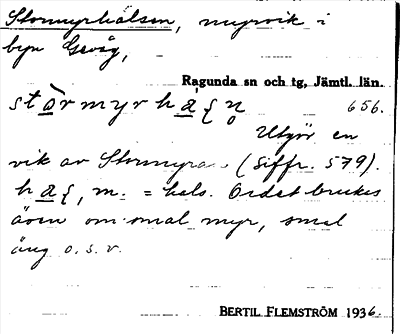 Stormyrhalsen, myrvik i
byn Gevåg,
Ragunda sn och tg, Jämtl. län.
656.
Utgör en
vik av Stormyran (Siffr. 579).
m. = hals. Ordet brukas
även om smal myr, smal
äng o.s.v.
BERTIL FLEMSTRÖM 1936.